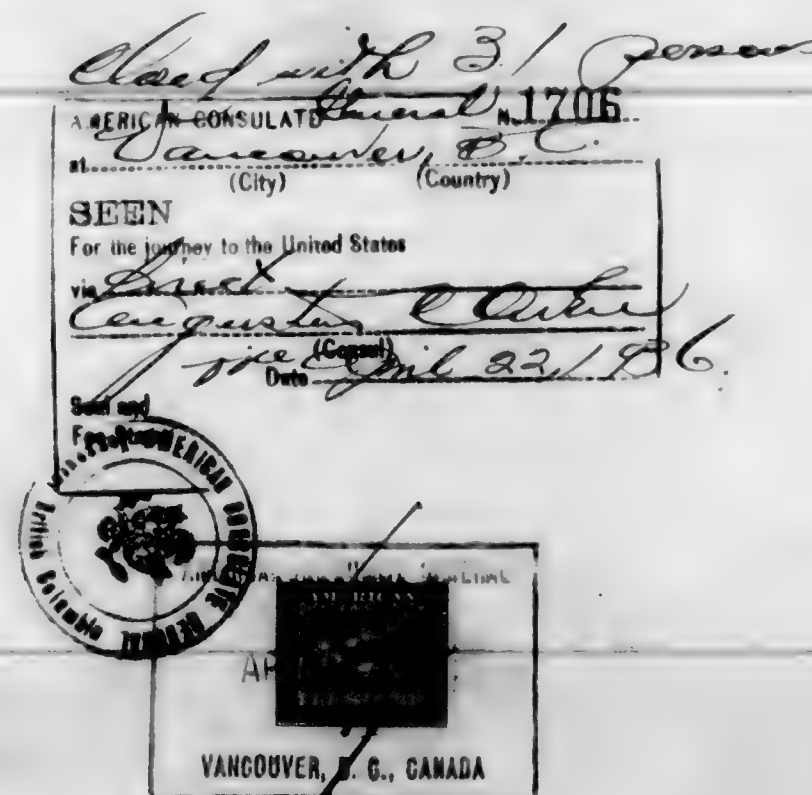 Closed with 31 persons
AMERICAN CONSULATE General No. 1706
at Vancouver, B.C.
(City) (Country)
SEEN
For the journey to the United States
via direct
Augustus
(Consul)
Date April 22/36.
Seal and
Fee Stamp
AMERICAN CONSULATE GENERAL
British Columbia
AMERICAN
VANCOUVER, B. C., CANADA